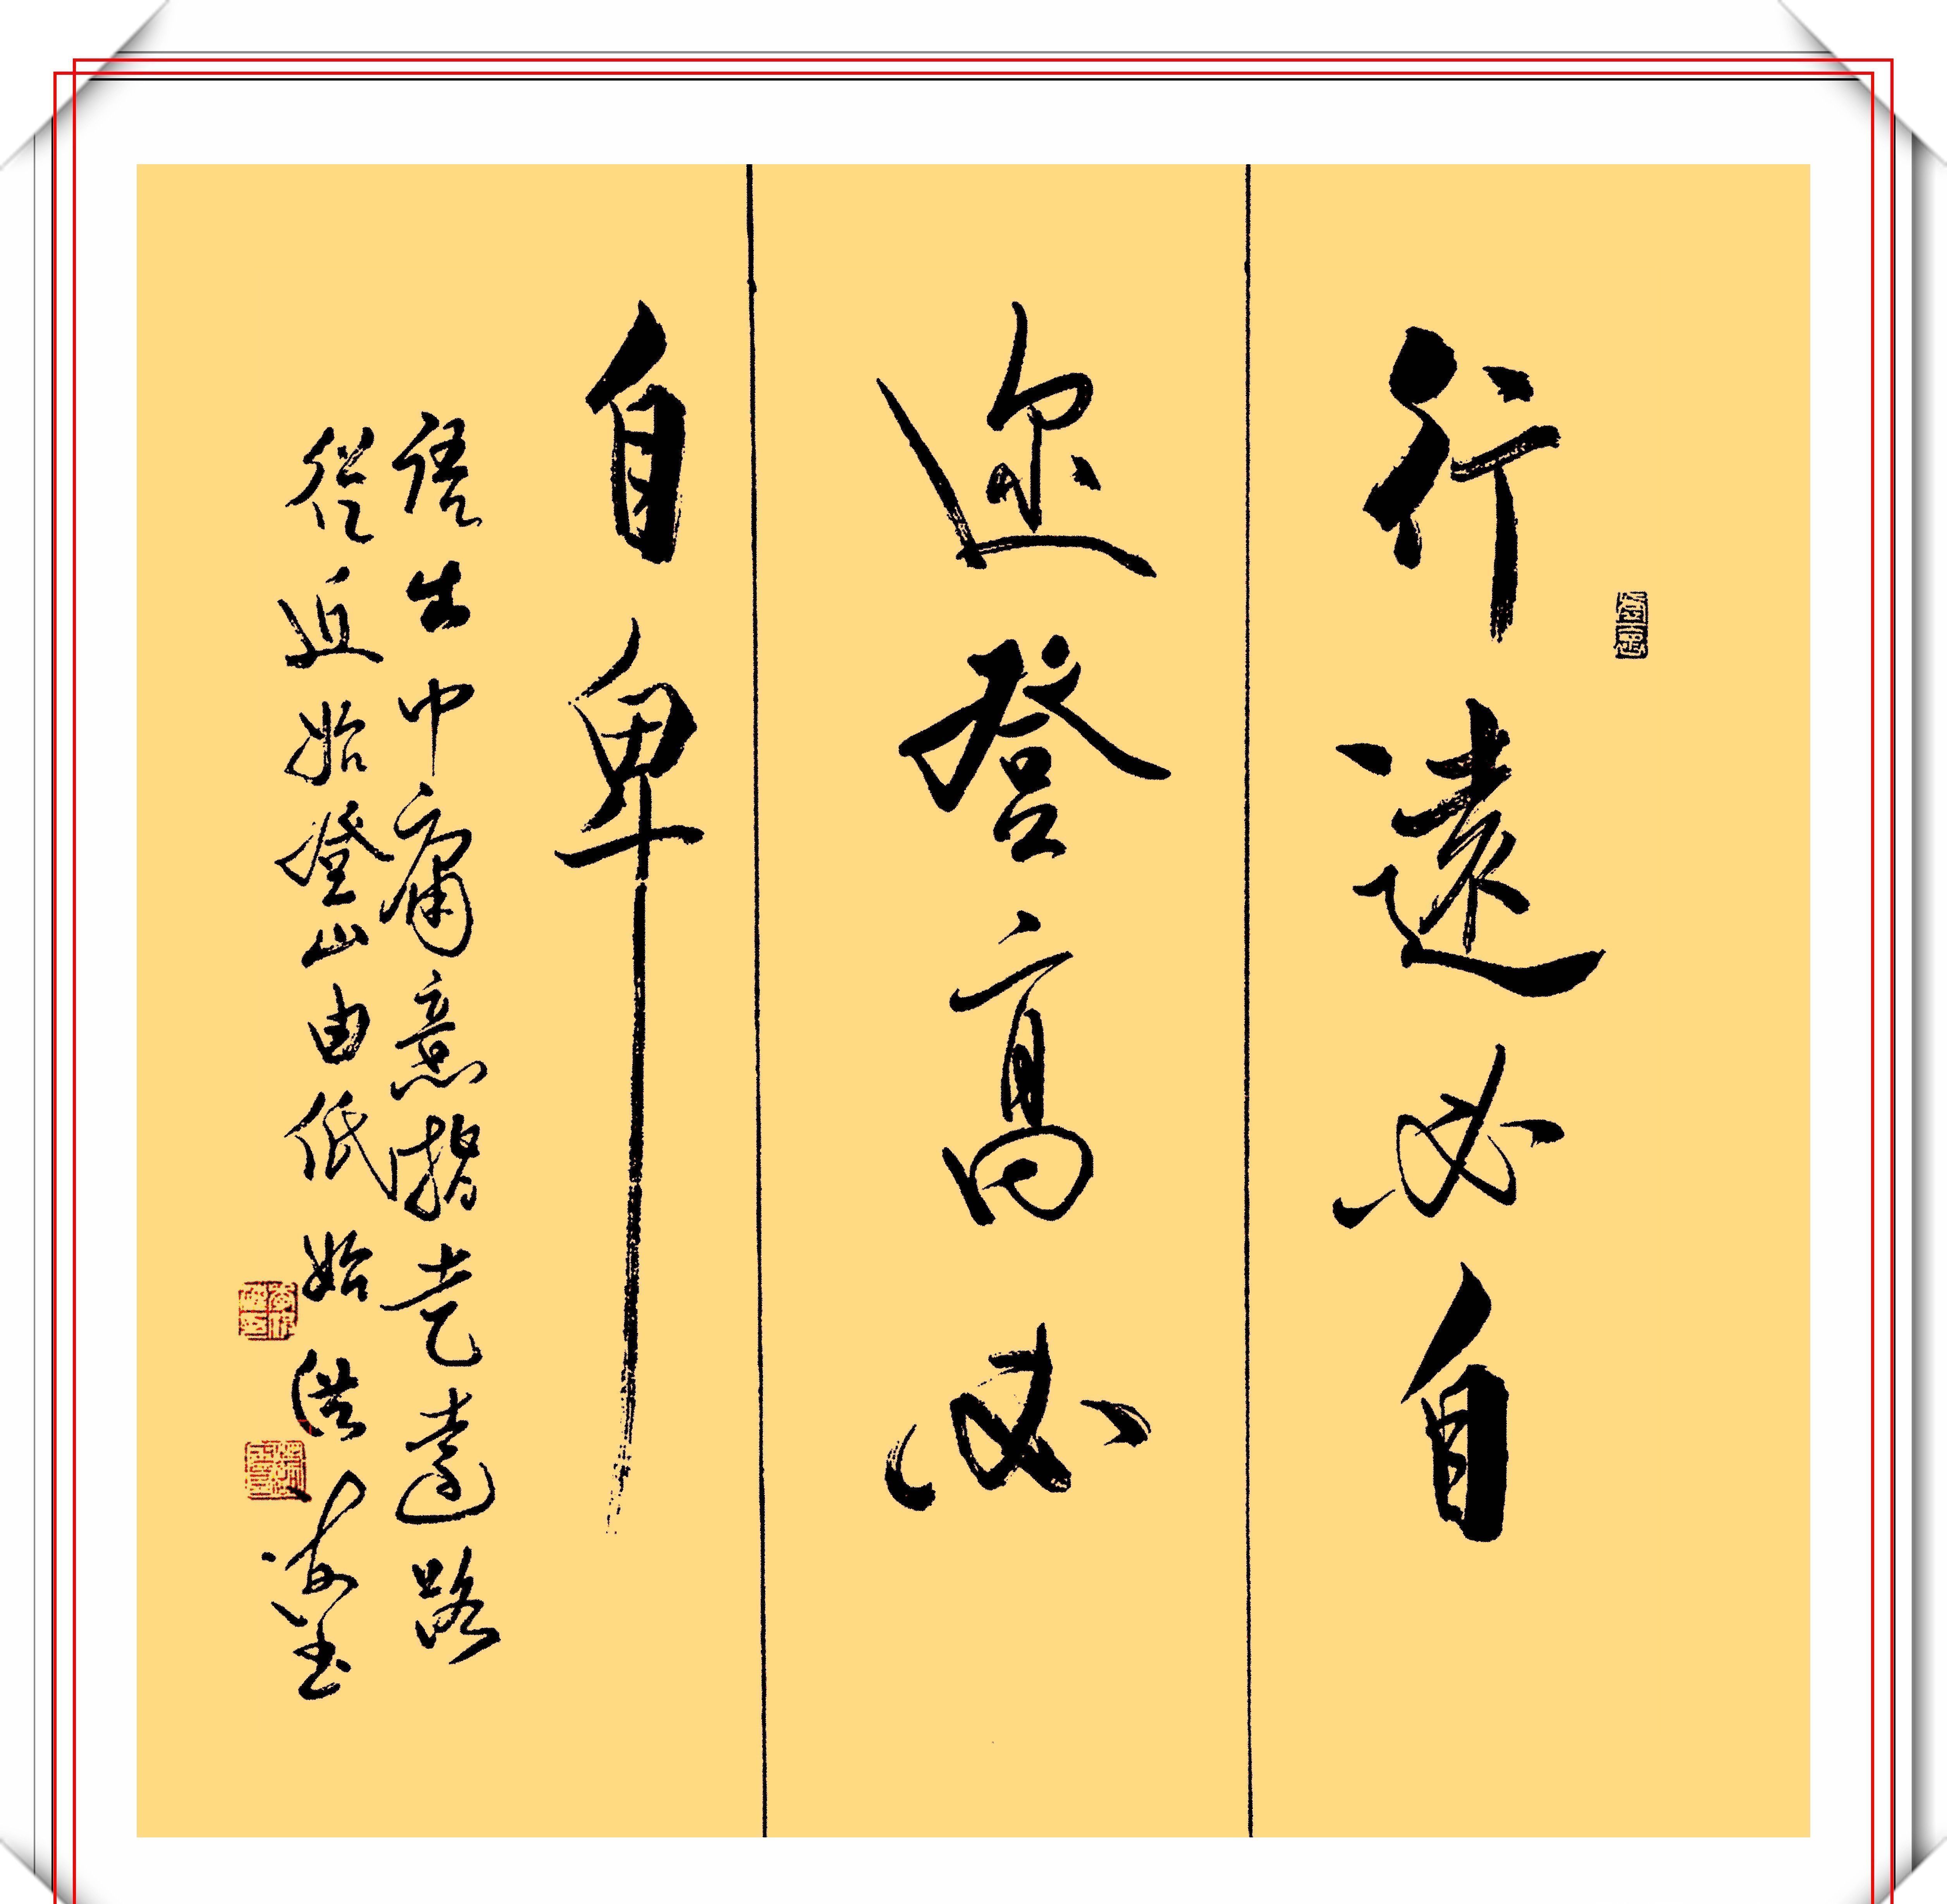 行遠必自
迩登高必
自卑
语出中庸意指走遠路
從近始登山由低始洪